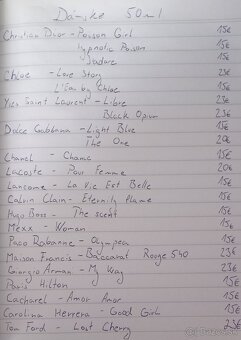 Dámske 50ml
Christian Dior - Poison Girl 15€
Hypnotic Poison 15€
J'adore 15€
Chloe - Love Story 23€
L'Eau by Chloe 15€
Yves Saint Laurent - Libre 23€
Black Opium 23€
Dolce Gabbana - Light Blue 15€
The One 20€
Chanel - Chance 15€
Lacoste - Pour Femme 20€
Lancome - La Vie Est Belle 15€
Calvin Clain - Eternity Flame 15€
Hugo Boss - The scent 15€
Mexx - Woman 15€
Paco Robanne - Olympea 15€
Maison Francis - Baccarat Rouge 540 23€
Giorgio Armani - My Way 23€
Paris Hilton 15€
Cacharel - Amor Amor 15€
Carolina Herrera - Good Girl 15€
Tom Ford - Lost Cherry 23€